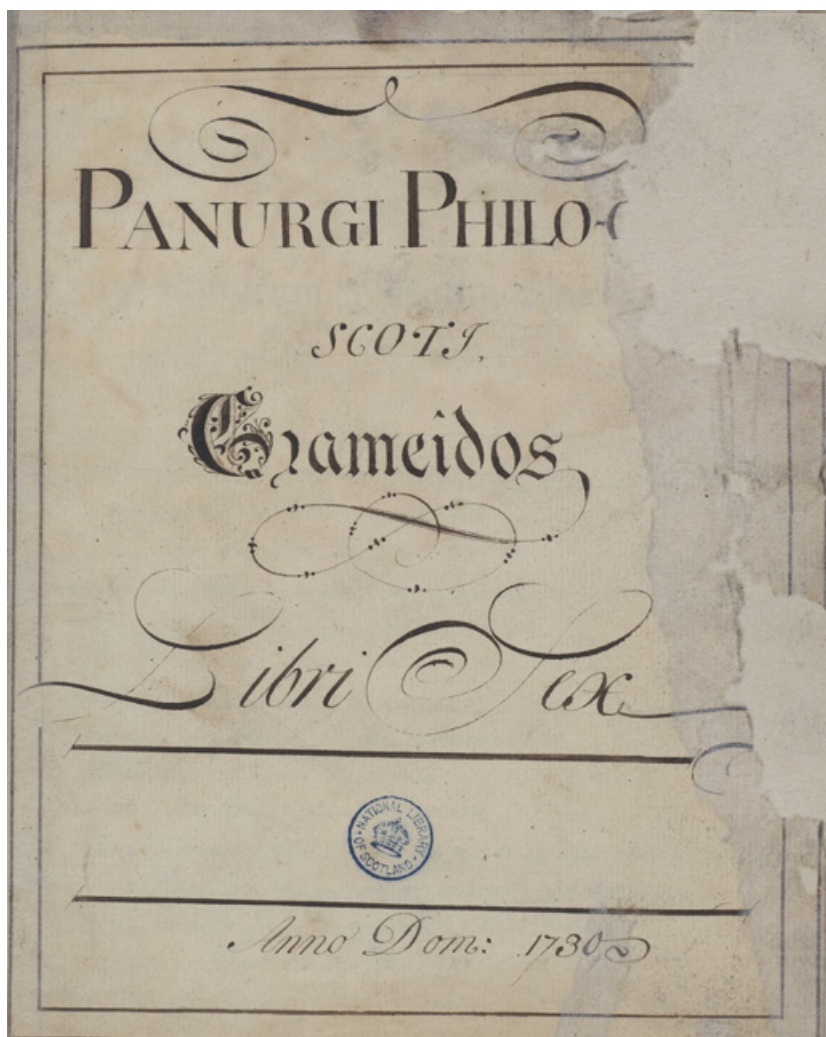 PANURGI PHILO-
SCOTI,
Grameidos
Libri Sex
NATIONAL LIBRARY OF SCOTLAND
Anno Dom: 1730